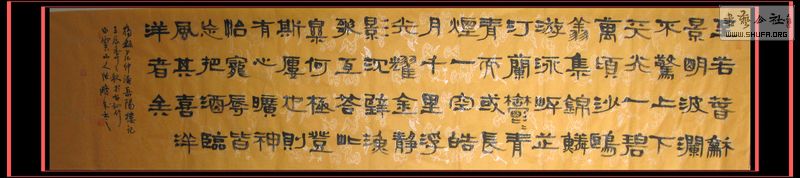 至若春龢
景明波瀾
不驚上下
天光一碧
萬頃沙鷗
翔集錦鱗
游泳岸芷
汀蘭鬱〻青
青而或長
煙一空皓
月千里浮
光耀金靜
影沈璧漁
歌互答此
樂何極登
斯廔也則
有心曠神
怡寵辱皆
忘把酒臨
風其喜洋
洋者矣
范仲淹岳陽樓記
WWW.SHUFA.ORG